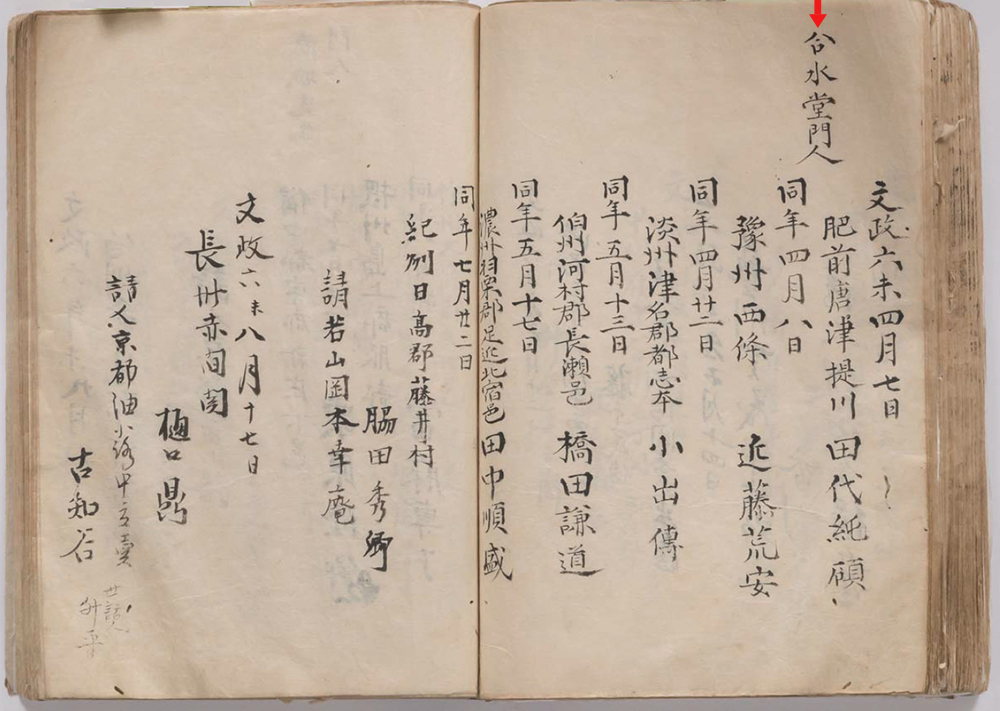 合水堂門人
文政六未四月七日
肥前唐津提川 田代純頎
同年四月八日
豫州西條 近藤荒安
同年四月廿二日
淡州津名郡都志本 小出傳
同年五月十三日
伯州河村郡長瀬邑 橋田謙道
同年五月十七日
濃州羽栗郡足近北宿邑 田中順盛
同年七月廿二日
紀州日高郡藤井村
脇田秀卿
請若山岡本幸庵
文政六未八月十七日
長州赤間関
樋口鼎
請人京都油小路中立賣
古知谷
世話人